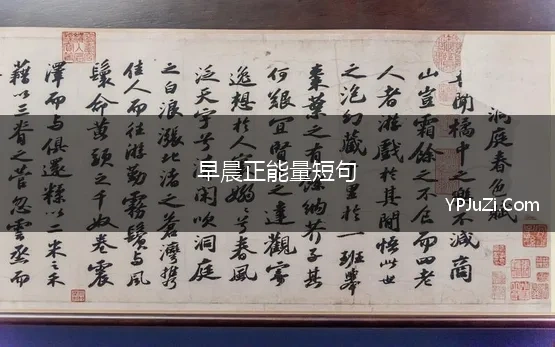 洞庭春色賦
聞橘中之樂不減商
山豈霜餘之不食而四老
人者游戲於其間悟此世
之泡幻藏里於一班舉
棗葉之有餘納芥子其
何艱宜賢之達觀寄
逸想於人嫋兮春風
泛天宇兮閑吹洞庭
之白浪漲北渚之蒼灣攜
佳人而往游勤霧鬢與風
鬟命黃頭之千奴卷震
澤而與俱還糅以二米之禾
藉以三脊之菅忽雲烝而
早晨正能量短句
YPJuZi.Com